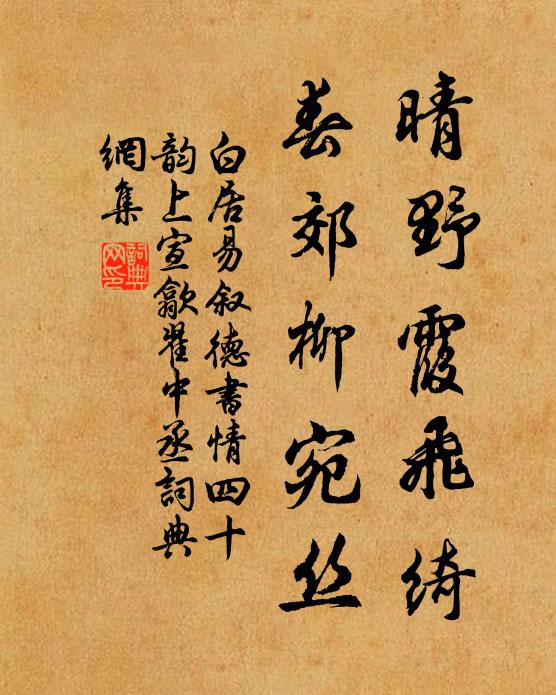 晴野霞飛綺
春郊柳宛丝
白居易叙德書情四十
韵上宣歙翟中丞詞典
網集
詞典
网印